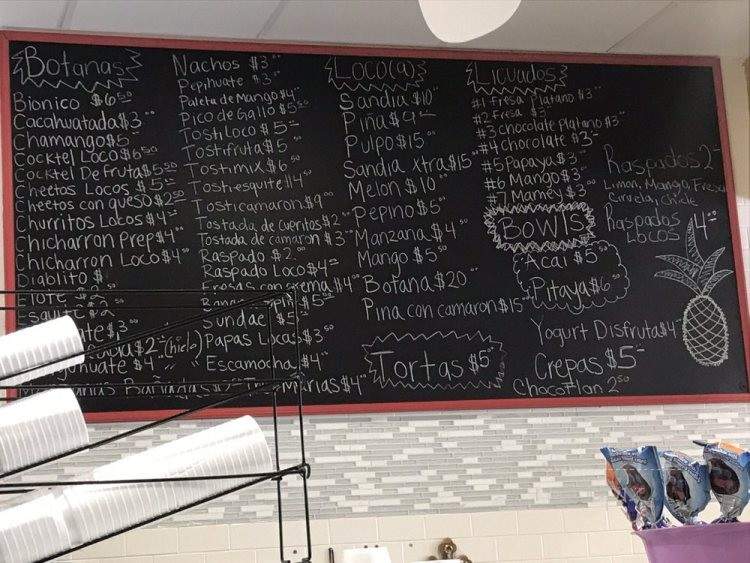 Botanas
Bionico $6.50
Cacahuatada $3.00
Chamango $5
Cocktel Loco $6.50
Cocktel De fruta $5.50
Cheetos Locos $5
Cheetos con queso $2.50
Churritos Locos $4
Chicharron Prep $4.00
Chicharron Loco $4.00
Diablito $
Elote
$3.00
$2 (Chico)
$4
Nachos $3.00
Pepihuate $3
Paleta de Mango $4
Pico de Gallo $5.50
Tosti Loco $5
Tostifruta $5
Tostimix $6
Tostiesquite $4
Tosticamaron $9.00
Tostada de Cueritos $2
Tostada de camaron $3
Raspado $2.00
Raspado Loco $4
Fresas con crema $4.00
$5
Sundae $5
Papas Locas $3.50
Escamocha $4
Marias $4
Loco(a)
Sandia $10
Piña $9
Pulpo $15
Sandia Xtra $15
Melon $10
Pepino $5
Manzana $4
Mango $5
Botana $20
Pina con camaron $15
Tortas $5
Licuados
#1 Fresa Platano $3
#2 Fresa $3
#3 chocolate platano $3
#4 chocolate $3
#5 Papaya $3
#6 Mango $3
#7 Mamey $3
Bowls
Acai $5
Pitaya $6
Raspados 2
Limon, Mango, Fresa
Ciruela, Chicle
Raspados
Locos $4
Yogurt Disfruta $4
Crepas $5
Chocoflan 2.50